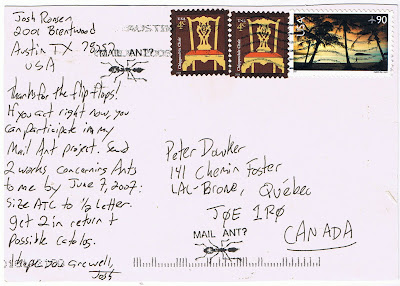 Josh Ronsen
2001 Brentwood
Austin TX
USA
MAIL ANT?
90
Thanks for the flip flops!
If you act right now, you
can participate in my
Mail Ant project. Send
2 works concerning Ants
to me by June 7, 2007:
Size ATC to 1/2 letter.
get 2 in return +
possible catalog.
I hope you are well,
Josh
Peter Dowker
141 Chemin Foster
LAC-Brome, Québec
JØE 1RØ
CANADA
MAIL ANT?